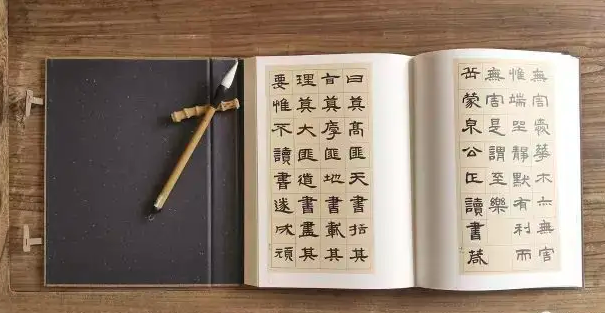 無害華木亦無害
惟端坐靜默有利而
無害是謂至樂
岳蒙泉公正讀書箴
曰莫高匪天書括其
旨莫厚匪地書載其
理莫大匪道書盡其
要惟不讀書遂成頑